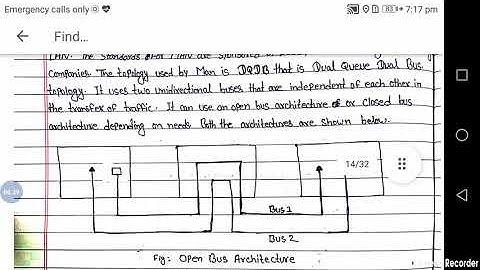 Emergency calls only
83
7:17 pm
Find...
companies. The topology used by Man is DQDB that is Dual Queue Dual Bus
topology. It uses two unidirectional buses that are independent of each other in
the transfer of traffic. It can use an open bus architecture or closed bus
architecture depending on needs. Both the architectures are shown below.
14/32
Bus 1
Bus 2
Fig: Open Bus Architecture
Recorder